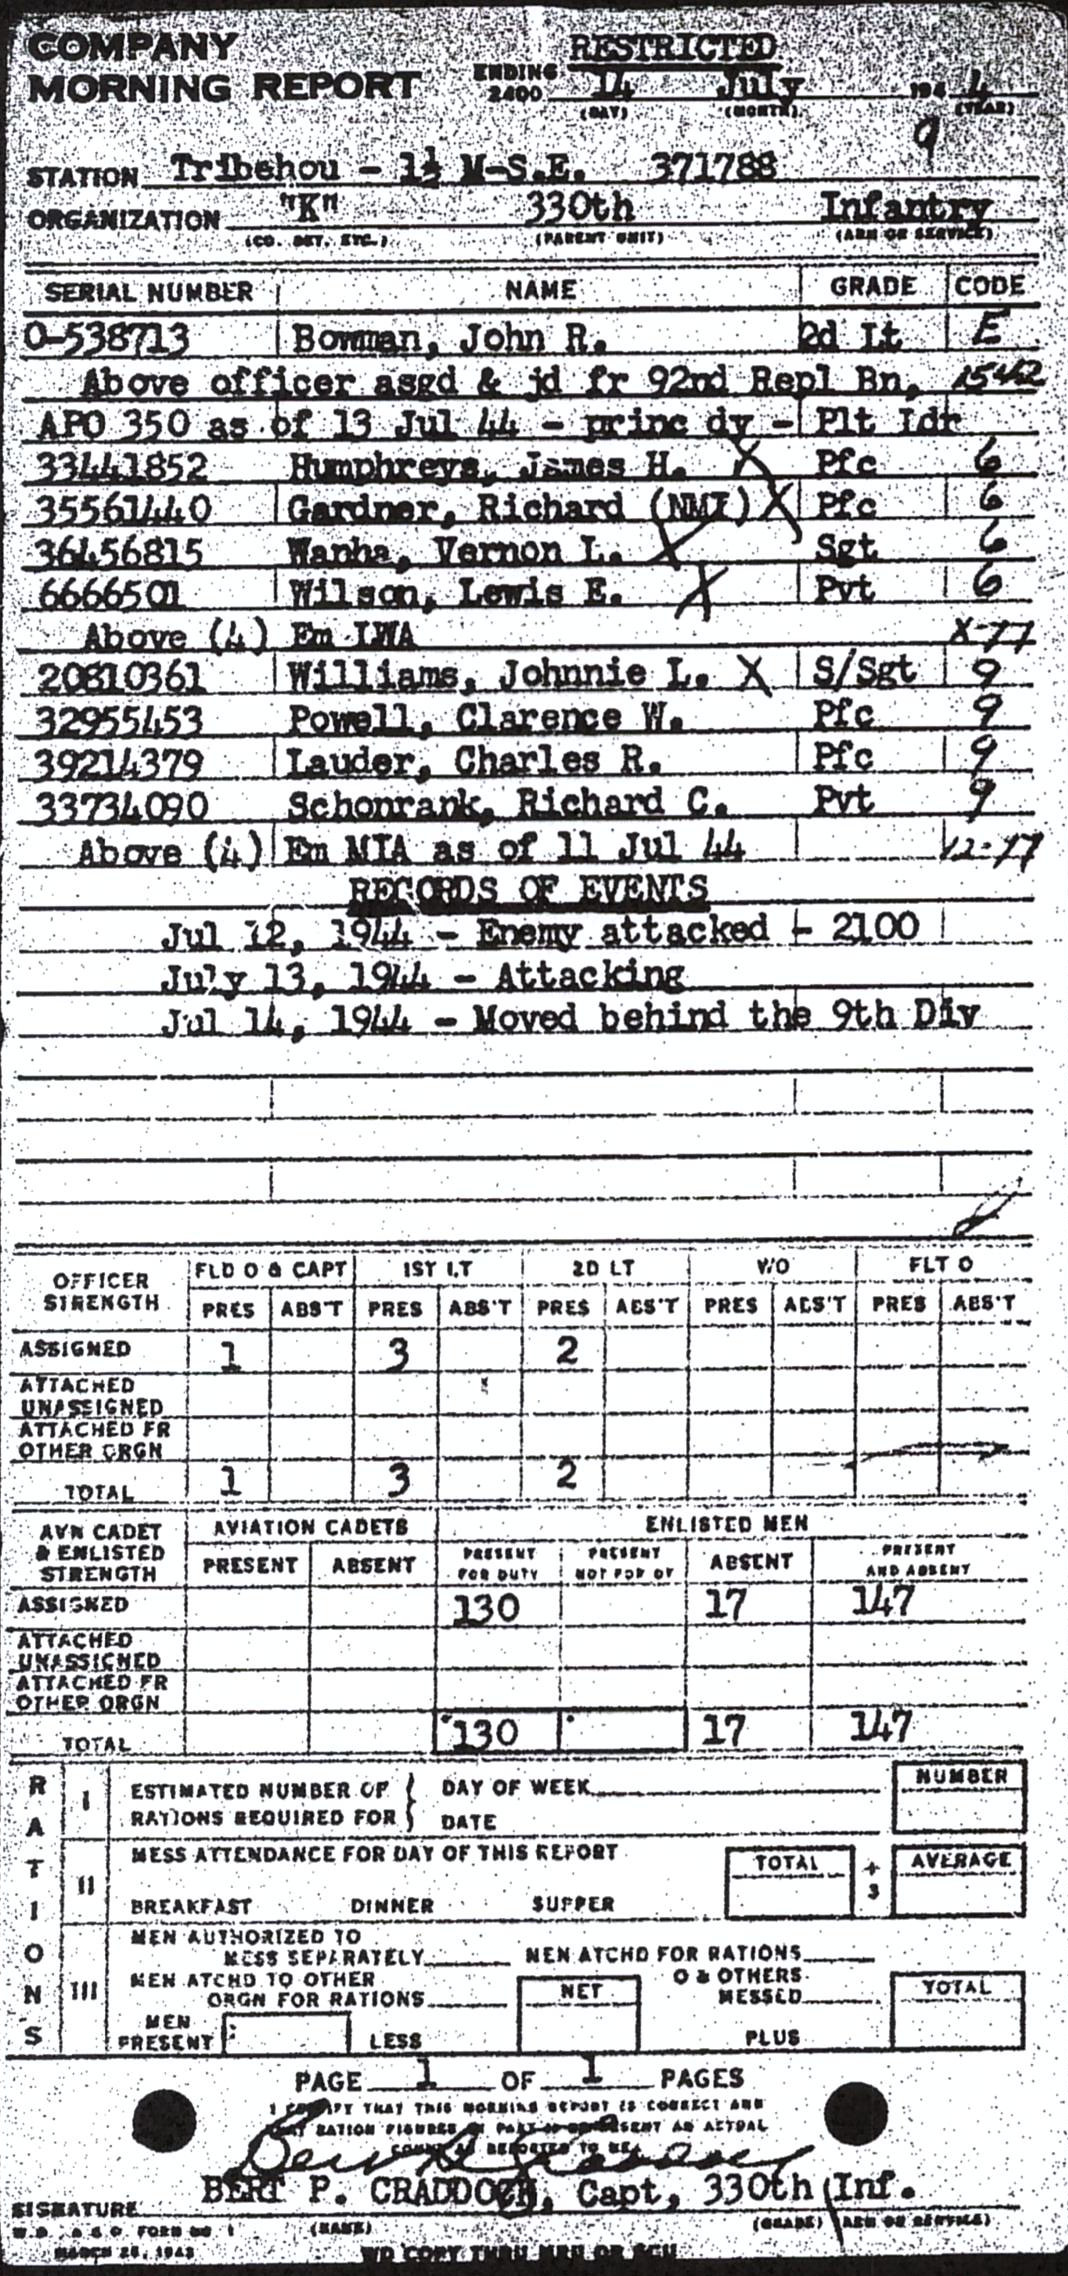 COMPANY
MORNING REPORT
RESTRICTED
ENDING 2400 14 July 194 4
(DAY) (MONTH) (YEAR)
9
STATION Tribehou - 1½ M-S.E. 371788
ORGANIZATION "K" 330th Infantry
(CO. DET. ETC.) (PARENT UNIT) (ARM OR SERVICE)
SERIAL NUMBER NAME GRADE CODE
O-538713 Bowman, John R. 2d Lt E
Above officer asgd & jd fr 92nd Repl Bn,
APO 350 as of 13 Jul 44 - princ dy - Plt Ldr
33441852 Humphreys, James H. X Pfc 6
35561440 Gardner, Richard (NMI) X Pfc 6
36456815 Wanha, Vernon L. X Sgt 6
6666501 Wilson, Lewis E. X Pvt 6
Above (4) Em LWA X-77
20810361 Williams, Johnnie L. X S/Sgt 9
32955453 Powell, Clarence W. Pfc 9
39214379 Lauder, Charles R. Pfc 9
33734090 Schonrank, Richard C. Pvt 9
Above (4) Em MIA as of 11 Jul 44 12-77
RECORDS OF EVENTS
Jul 12, 1944 - Enemy attacked - 2100
July 13, 1944 - Attacking
Jul 14, 1944 - Moved behind the 9th Div
OFFICER STRENGTH FLD O & CAPT 1ST LT 2D LT W/O FLT O
PRES ABS'T PRES ABS'T PRES ABS'T PRES ABS'T PRES ABS'T
ASSIGNED 1 3 2
ATTACHED UNASSIGNED
ATTACHED FR OTHER ORGN
TOTAL 1 3 2
AVN CADET & ENLISTED STRENGTH AVIATION CADETS ENLISTED MEN
PRESENT ABSENT PRESENT FOR DUTY PRESENT NOT FOR DY ABSENT PRESENT AND ABSENT
ASSIGNED 130 17 147
ATTACHED UNASSIGNED
ATTACHED FR OTHER ORGN
TOTAL 130 17 147
RATIONS
I ESTIMATED NUMBER OF RATIONS REQUIRED FOR DAY OF WEEK DATE NUMBER
II MESS ATTENDANCE FOR DAY OF THIS REPORT TOTAL ÷ 3 AVERAGE
BREAKFAST DINNER SUPPER
III MEN AUTHORIZED TO MESS SEPARATELY MEN ATCHD FOR RATIONS
MEN ATCHD TO OTHER ORGN FOR RATIONS NET O & OTHERS MESSED TOTAL
MEN PRESENT LESS PLUS
PAGE 1 OF 1 PAGES
I CERTIFY THAT THIS MORNING REPORT IS CORRECT AND
THAT RATION FIGURES IN PART III REPRESENT AN ACTUAL
COUNT AS REPORTED TO ME
BERT P. CRADDOCK, Capt, 330th Inf.
SIGNATURE
(NAME) (GRADE) (ARM OR SERVICE)
W.D., A.G.O. FORM NO 1
MARCH 25, 1943
WD COPY THRU MRU OR SCU